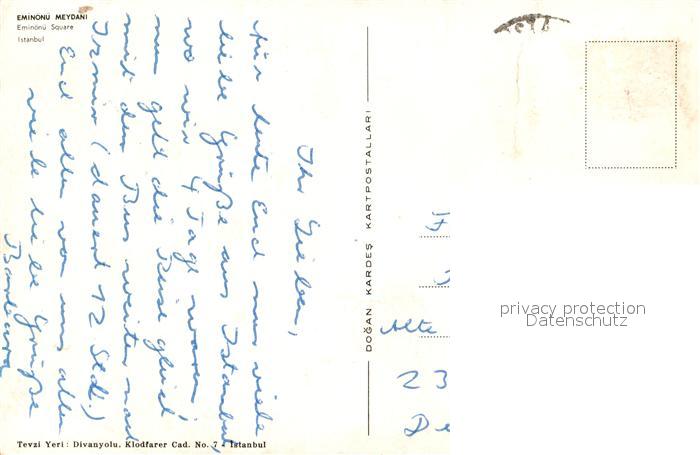 EMİNÖNÜ MEYDANI
Eminönü Square
Istanbul
Ihr Lieben,
für heute Euch nur viele
liebe Grüße aus Istanbul,
wo wir 4 Tage waren,
nun geht die Reise gleich
mit dem Bus weiter nach
Izmir (dauert 12 Std.)
Euch allen von uns allen
viele liebe Grüße
Barbara
DOĞAN KARDEŞ KARTPOSTALLARI
Alte
23
De
privacy protection
Datenschutz
Tevzi Yeri : Divanyolu, Klodfarer Cad. No. 7 - Istanbul